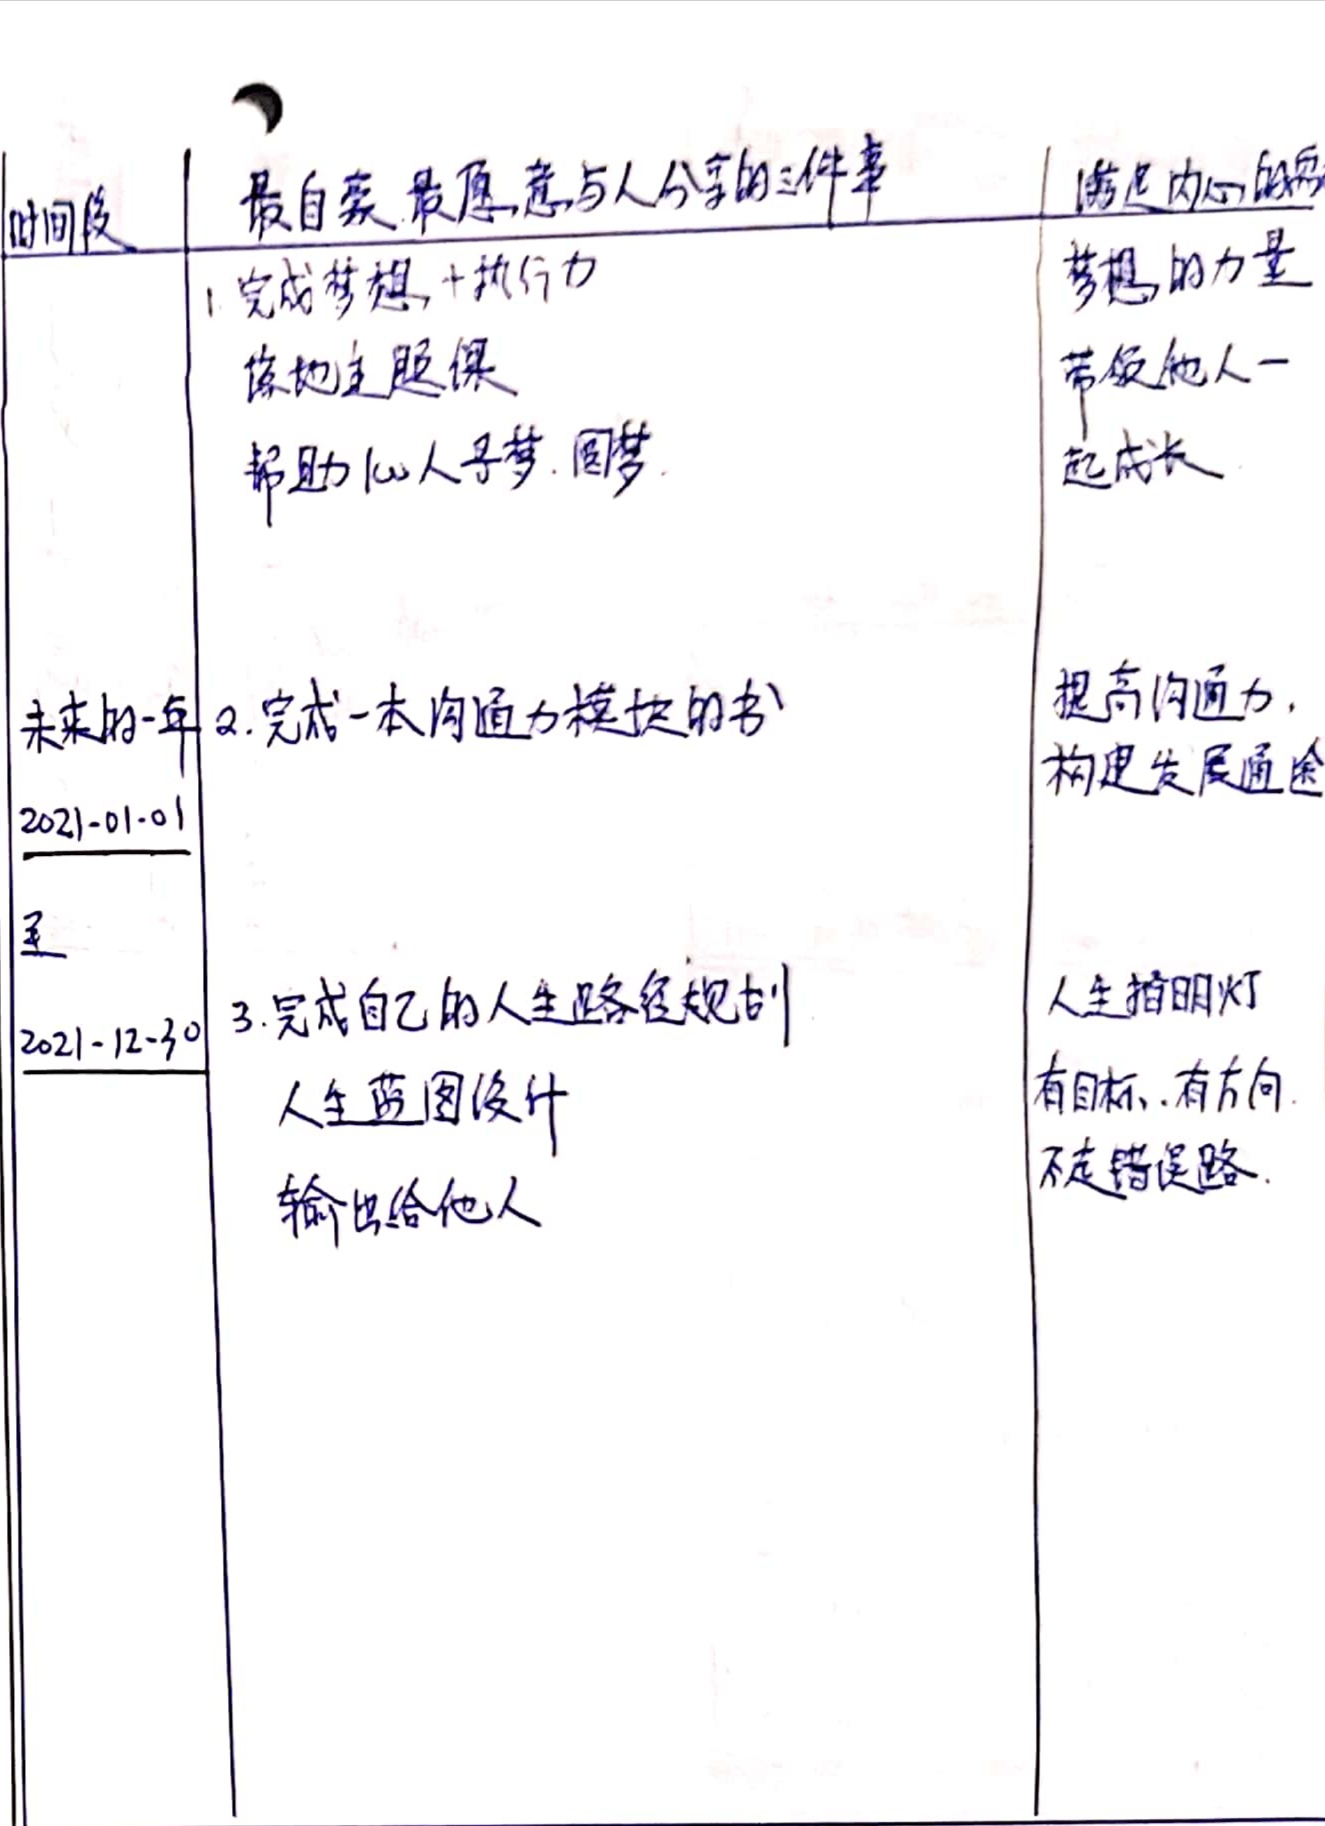 时间段
最自豪.最愿意与人分享的三件事
满足内心的需
1. 完成梦想+执行力
落地主题俱
帮助100人寻梦.圆梦.
梦想的力量
带领他人一
起成长.
未来的一年
2021-01-01
至
2021-12-30
2.完成一本沟通力模块的书
提高沟通力,
构建发展通途
3.完成自己的人生路径规划
人生蓝图设计
输出给他人
人生指明灯
有目标、.有方向.
不走错误路.